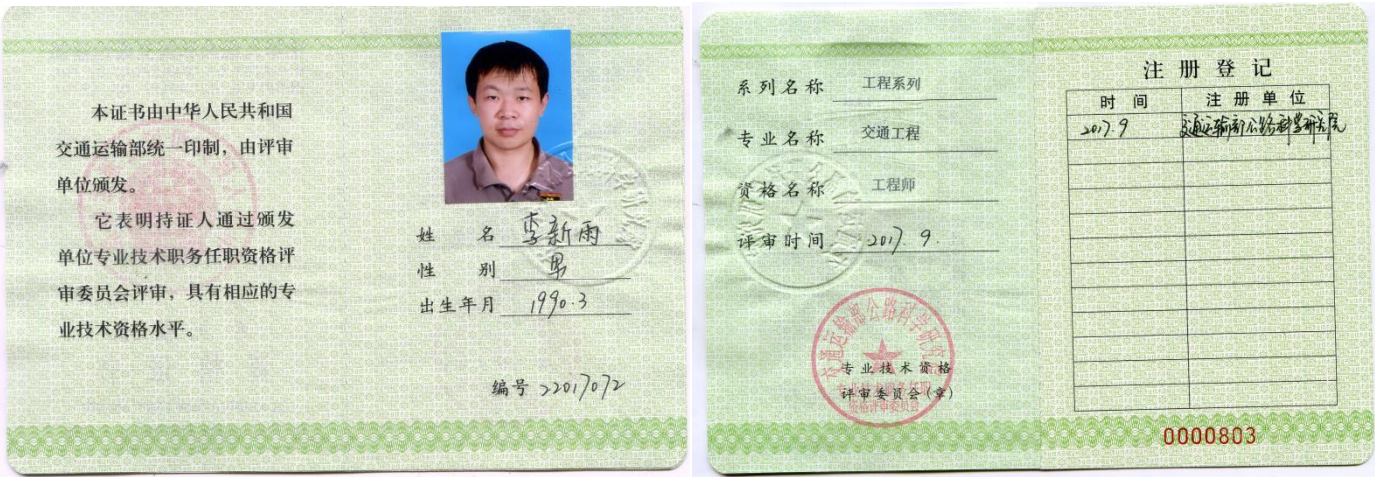 本证书由中华人民共和国
交通运输部统一印制，由评审
单位颁发。
它表明持证人通过颁发
单位专业技术职务任职资格评
审委员会评审，具有相应的专
业技术资格水平。
姓 名 李新雨
性 别 男
出生年月 1990.3
编号 22017072
系列名称 工程系列
专业名称 交通工程
资格名称 工程师
评审时间 2017.9.
交通运输部公路科学研究院
专业技术资格
评审委员会(章)
专业技术职务任职
资格评审委员会
注册登记
时间 注册单位
2017.9 交通运输部公路科学研究院
0000803